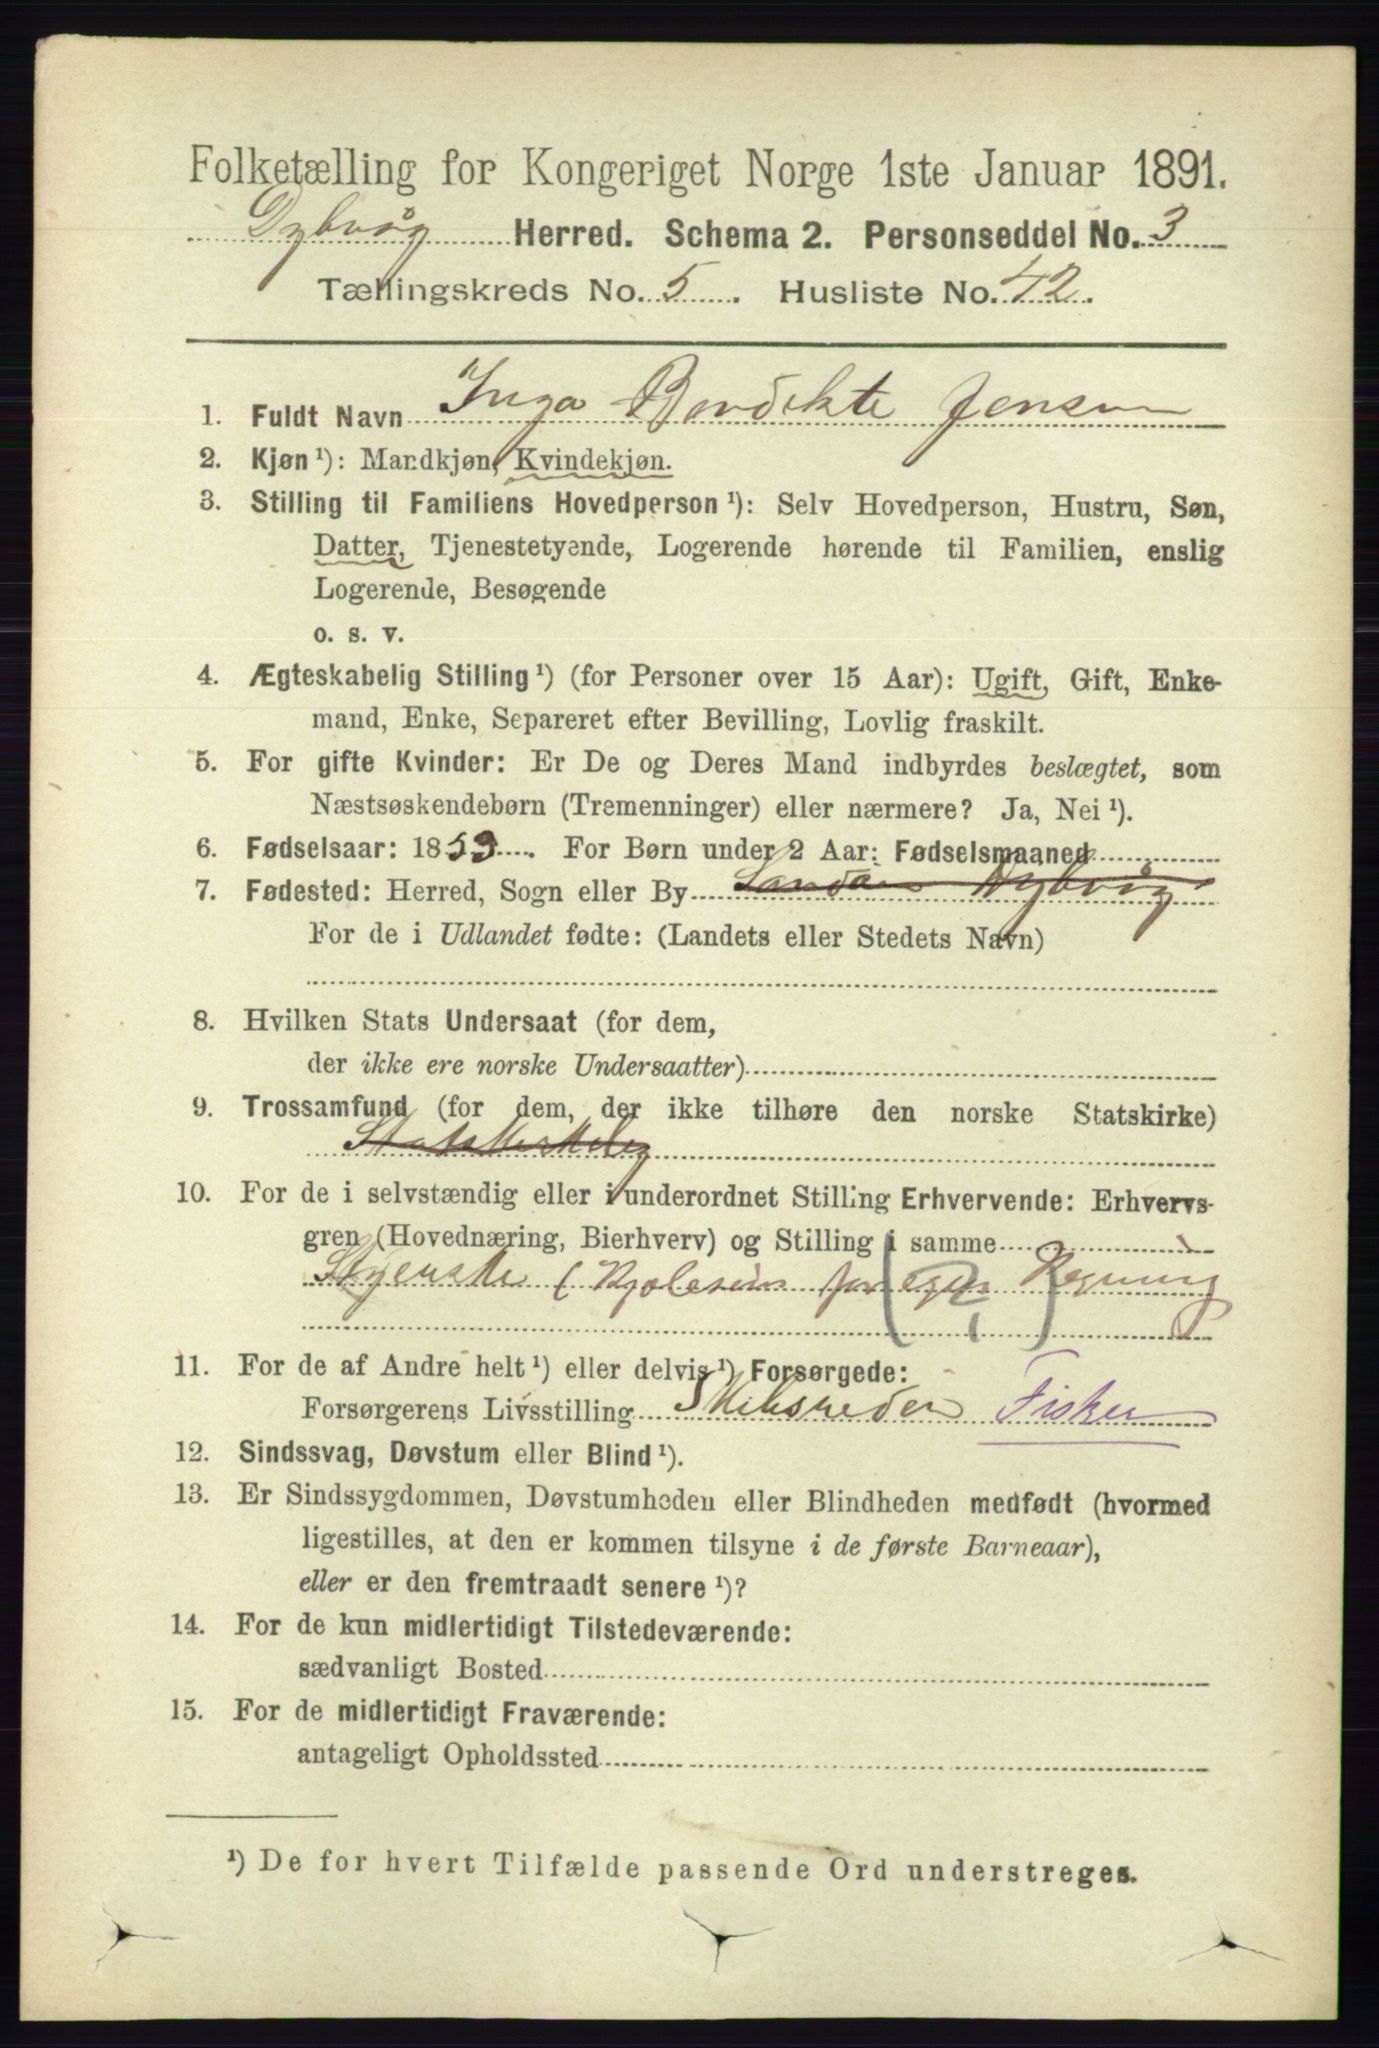 Folketælling for Kongeriget Norge 1ste Januar 1891.
Dybvåg Herred. Schema 2. Personseddel No. 3
Tællingskreds No. 5. Husliste No. 42.
1. Fuldt Navn Inga Bendikte Jensen
2. Kjøn ¹): Mandkjøn, Kvindekjøn.
3. Stilling til Familiens Hovedperson ¹): Selv Hovedperson, Hustru, Søn,
Datter, Tjenestetyende, Logerende hørende til Familien, enslig
Logerende, Besøgende
o. s. v.
4. Ægteskabelig Stilling ¹) (for Personer over 15 Aar): Ugift, Gift, Enke-
mand, Enke, Separeret efter Bevilling, Lovlig fraskilt.
5. For gifte Kvinder: Er De og Deres Mand indbyrdes beslægtet, som
Næstsøskendebørn (Tremenninger) eller nærmere? Ja, Nei ¹).
6. Fødselsaar: 1853. For Børn under 2 Aar: Fødselsmaaned
7. Fødested: Herred, Sogn eller By Dybvåg
For de i Udlandet fødte: (Landets eller Stedets Navn)
8. Hvilken Stats Undersaat (for dem,
der ikke ere norske Undersaatter)
9. Trossamfund (for dem, der ikke tilhøre den norske Statskirke)
10. For de i selvstændig eller i underordnet Stilling Erhvervende: Erhvervs-
gren (Hovednæring, Bierhverv) og Stilling i samme
(Kjolesøm for (egen) Regning
11. For de af Andre helt ¹) eller delvis ¹) Forsørgede:
Forsørgerens Livsstilling Skibsreder Fisker
12. Sindssvag, Døvstum eller Blind ¹).
13. Er Sindssygdommen, Døvstumheden eller Blindheden medfødt (hvormed
ligestilles, at den er kommen tilsyne i de første Barneaar),
eller er den fremtraadt senere ¹)?
14. For de kun midlertidigt Tilstedeværende:
sædvanligt Bosted
15. For de midlertidigt Fraværende:
antageligt Opholdssted
¹) De for hvert Tilfælde passende Ord understreges.